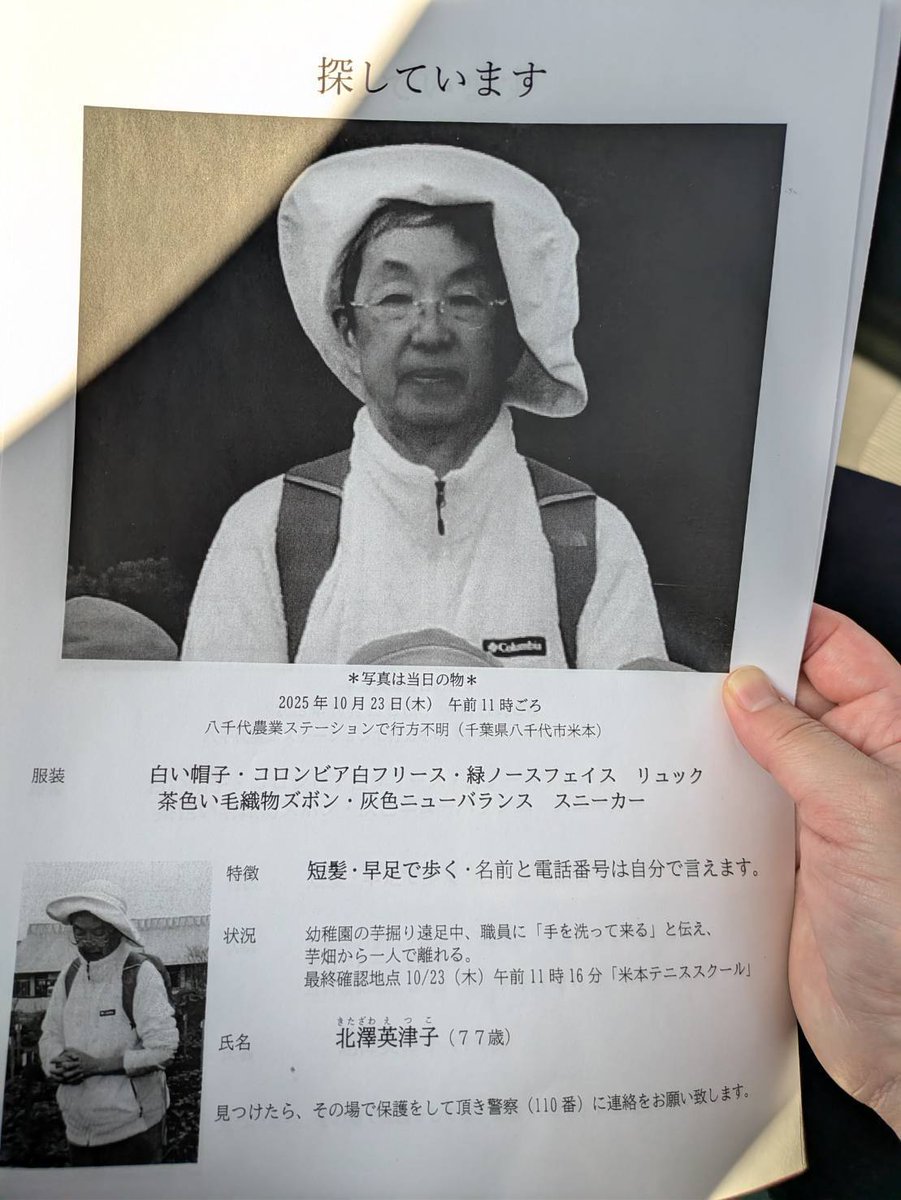 探しています
Columbia
＊写真は当日の物＊
2025年10月23日(木)　午前11時ごろ
八千代農業ステーションで行方不明（千葉県八千代市米本）
服装　白い帽子・コロンビア白フリース・緑ノースフェイス　リュック
茶色い毛織物ズボン・灰色ニューバランス　スニーカー
特徴　短髪・早足で歩く・名前と電話番号は自分で言えます。
状況　幼稚園の芋掘り遠足中、職員に「手を洗って来る」と伝え、
芋畑から一人で離れる。
最終確認地点 10/23（木）午前11時16分「米本テニススクール」
きたざわ え つ こ
氏名　北澤英津子（７７歳）
見つけたら、その場で保護をして頂き警察（110番）に連絡をお願い致します。